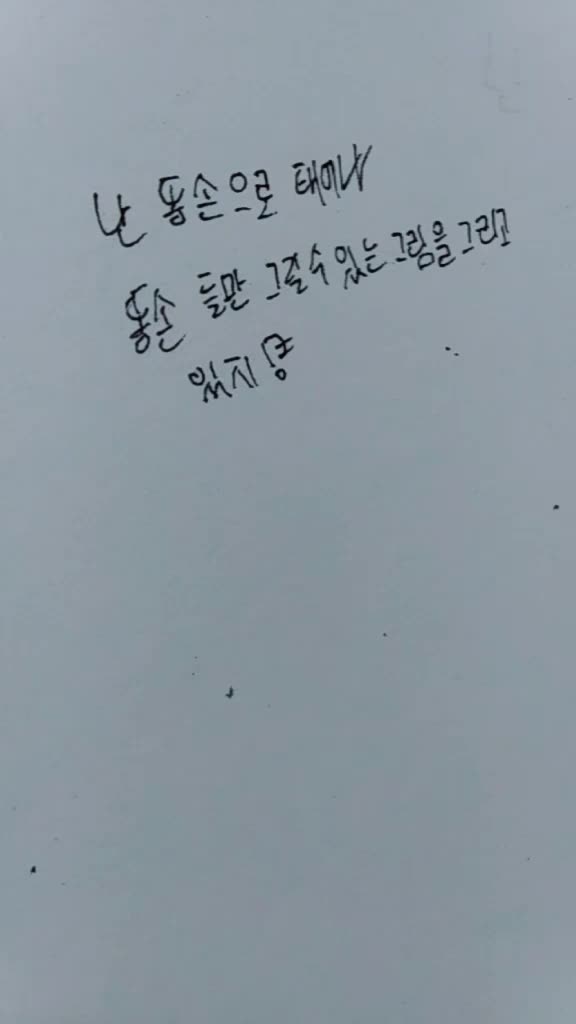 난 똥손으로 태어나
똥손 들만 그릴수 있는 그림을 그리고
있지롱